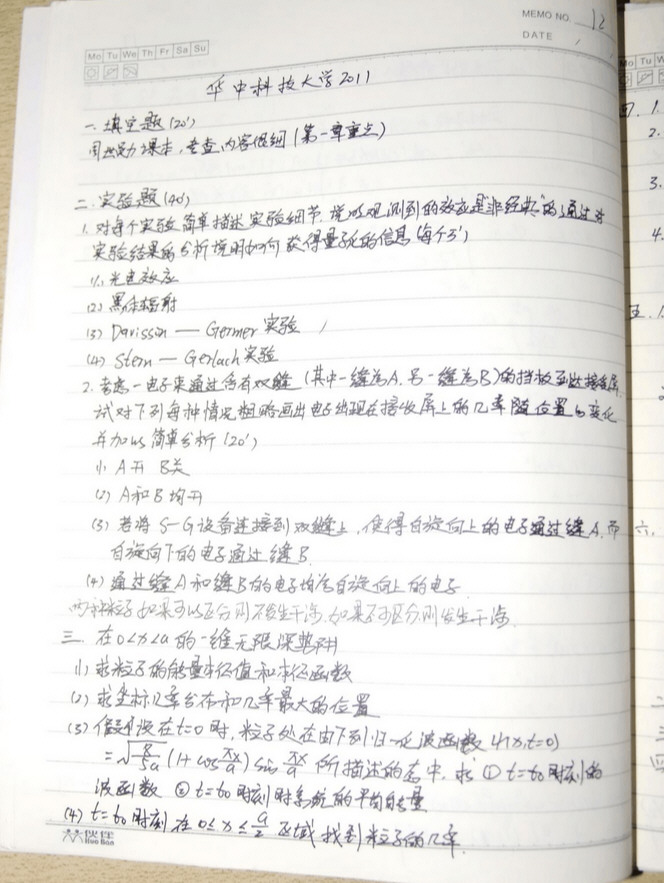 MEMO NO. 12
DATE / /
Mo Tu We Th Fr Sa Su
华中科技大学2011
一. 填空题 (20')
周世勋课本, 考查内容很细 (第一章重点)
二. 实验题 (40')
1. 对每个实验简单描述实验细节, 说明观测到的效应是"非经典"的, 通过对
实验结果的分析说明如何获得量子化的信息 (每个5')
(1) 光电效应
(2) 黑体辐射
(3) Davission — Germer 实验
(4) Stern — Gerlach 实验
2. 考虑一电子束通过含有双缝 (其中一缝为A, 另一缝为B) 的挡板到达接收屏,
试对下列每种情况粗略画出电子出现在接收屏上的几率随位置的变化
并加以简单分析 (20')
(1) A开 B关
(2) A和B均开
(3) 若将 S-G设备连接到双缝上, 使得自旋向上的电子通过缝A, 而
自旋向下的电子通过缝B.
(4) 通过缝A和缝B的电子均为自旋向上的电子
两种粒子如果可以区分则不发生干涉, 如果不可区分, 则发生干涉.
三. 在0<x<a的一维无限深势阱
(1) 求粒子的能量本征值和本征函数
(2) 求坐标几率分布和几率最大的位置
(3) 假设在t=0时, 粒子处在由下列归一化波函数 ψ(x,t=0)
=√(8/5a) (1+cos πx/a) sin πx/a 所描述的态中, 求 ① t=t₀时刻的
波函数 ② t=t₀时刻时系统的平均能量
(4) t=t₀时刻在 0≤x≤a/2 区域找到粒子的几率.
伙伴
Huo Ban
Mo Tu W
四. 1.
2.
3.
4.
五. 1.
六.